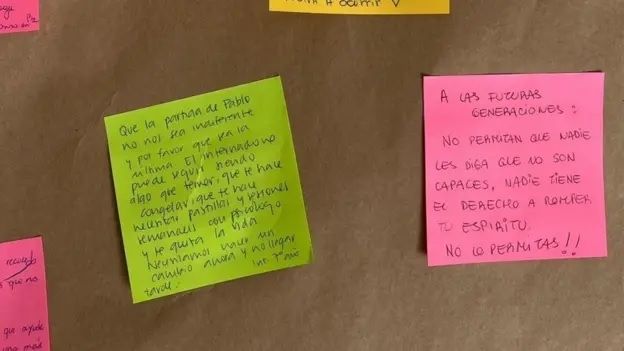 A ocurrir
Que la partida de Pablo
no nos sea indiferente
y por favor que sea la
última. El internado no
puede seguir siendo
algo que temer, que te hace
congelar, que te hace
necesitar pastillas y sesiones
semanales con psicólogo
y te quita la vida
Necesitamos hacer un
cambio ahora y no llegar
tarde.
Int. 7° año
A LAS FUTURAS
GENERACIONES:
NO PERMITAN QUE NADIE
LES DIGA QUE NO SON
CAPACES, NADIE TIENE
EL DERECHO A ROMPER
TU ESPIRITU.
NO LO PERMITAS!!
que no
que ayude
una más